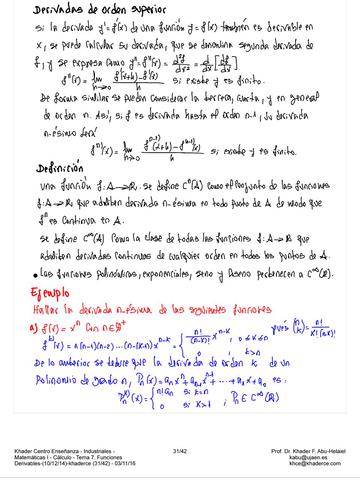 Derivadas de orden superior
Si la derivada y'=f'(x) de una función y=f(x) también es derivable en
x, se puede calcular su derivada, que se denomina segunda derivada de
f, y se expresa como y''=f''(x)= d²f/dx² = d/dx [df/dx]
f''(x)= lim h→0 (f'(x+h)-f'(x))/h si existe y es finito.
De forma similar se pueden considerar la tercera, cuarta, y en general
de orden n. Así, si f es derivable hasta el orden n-1, su derivada
n-ésima será
f^n)(x)= lim h→0 (f^(n-1)(x+h)-f^(n-1)(x))/h si existe y es finito.
Definición
Una función f:A→R. se define Cⁿ(A) como el conjunto de las funciones
f:A→R que admiten derivada n-ésima en todo punto de A de modo que
fⁿ es continua en A.
Se define C^∞(A) como la clase de todas las funciones f:A→R que
admiten derivadas continuas de cualquier orden en todos los puntos de A.
• Las funciones polinómicas, exponenciales, seno y coseno pertenecen a C^∞(R).
Ejemplo
Hallar la derivada n-ésima de las siguientes funciones
a) f(x)=xⁿ con n∈Z⁺
f^k)(x)= n(n-1)(n-2)···(n-(k-1))x^(n-k) = { n!/(n-k)! x^(n-k), 0≤k≤n
0, k>n
De lo anterior se deduce que la derivada de orden k de un
Polinomio de grado n, Pn(x)=an xⁿ+an-1 xⁿ⁻¹+ ··· +a1x+a0 es:
0 si
Khader Centro Enseñanza - Industriales -
Matemáticas I - Cálculo - Tema 7. Funciones
Derivables-(10/12/14)-khaderce (31/42) - 03/11/16
31/42
Prof. Dr. Khader F. Abu-Helaiel
kabu@ujaen.es
khce@khaderce.com